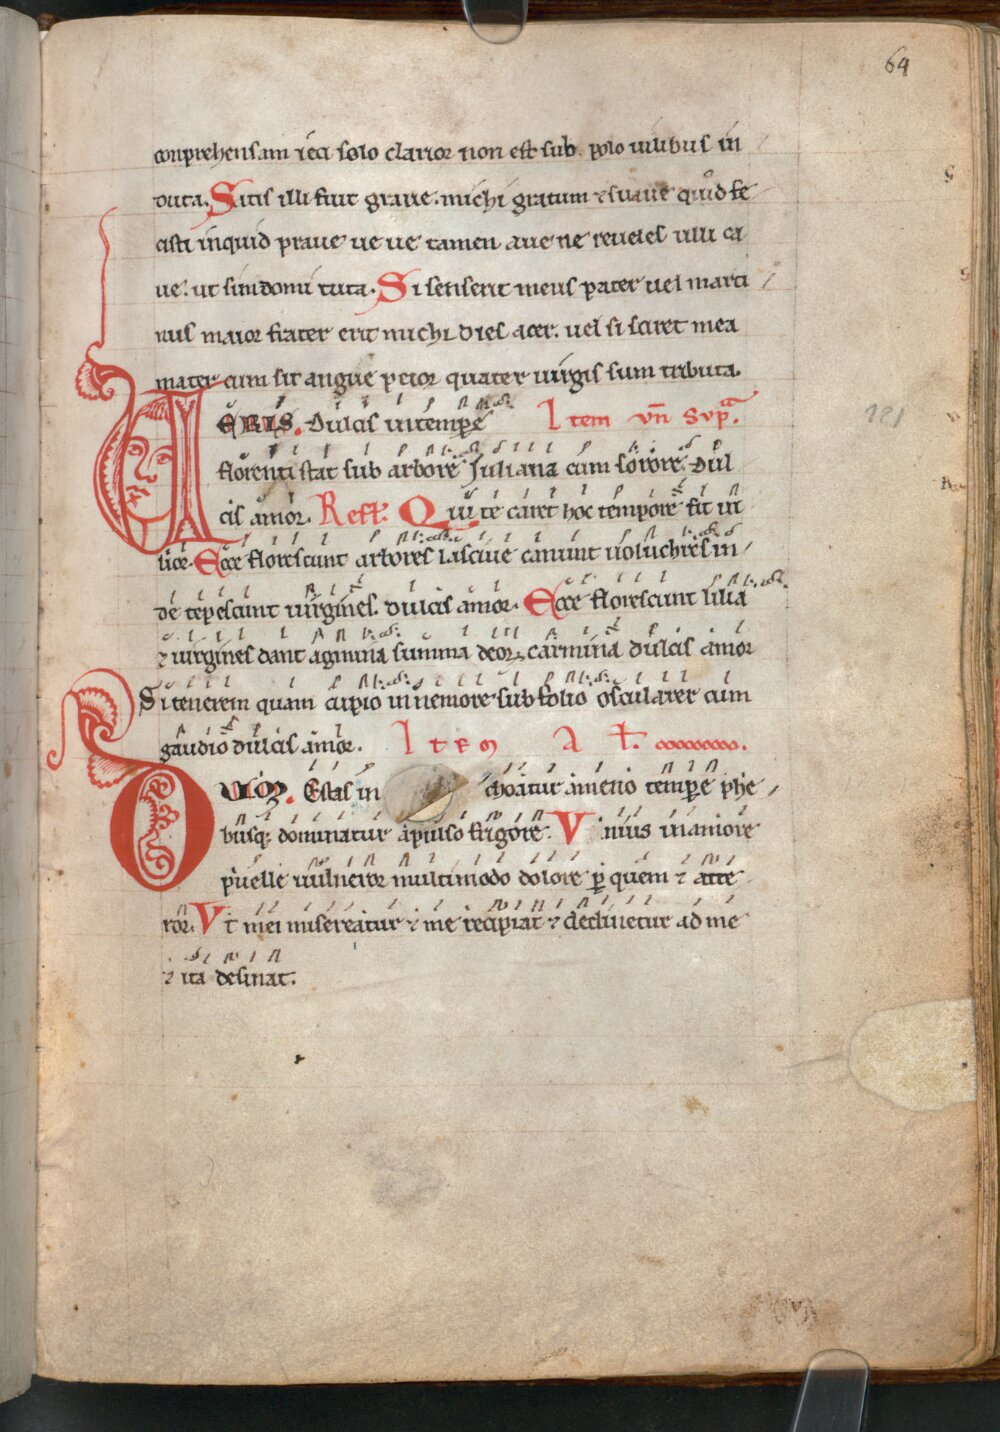 64
conprehensam ieci solo clarior non est sub polo uilibus in
duta. Satis illi fuit graue. michi gratum ⁊ suaue quid fe
cisti inquid praue ue ue tamen aue ne reueles ulli ca
ue. ut sim domi tuta. Si senserit meus pater uel marti
nus maior frater erit michi dies acer. uel si sciret mea
mater cum sit angue peior quater uirgis sum tributa.
VERIS. Dulcis in tempore Item vn̄ supᵃ.
florenti stat sub arbore Juliana cum sorore. Dul
cis amor. Refl. Qui te caret hoc tempore fit ui
lior. Ecce florescunt arbores lasciue canunt uoluchres in
de tepescunt uirgines. dulcis amor. Ecce florescunt lilia
⁊ uirgines dant agmina summa deorꝝ carmina dulcis amor
Si tenerem quam cupio in nemore sub folio oscularer cum
gaudio dulcis amor. Item Al.
DVM. Estas in choatur ameno tempore phe
busqꝫ dominatur apulso frigore. Vnius in amore
puelle uulneror multimodo dolore ꝑ quem ⁊ atte
ror. Vt mei misereatur ⁊ me recipiat ⁊ declinetur ad me
⁊ ita desinat.
121